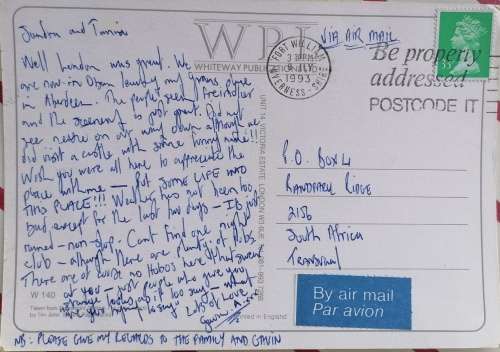 Sandra and
Well London was great. We
are now in Oban leaving my Grans place
in Aberdeen. The people seem friendlier
and the scenery is just great. Did not
see nessie on our way down although we
did visit a castle with some funny name!
Wish you were all here to appreciate the
place with me — Put SOME LIFE INTO
THIS PLACE!!! Weather has not been too
bad, except for the last two days — It's just
rained - non-stop. Cant find one night
club — although there are plenty of Pubs.
There are of course no Hobos here that swear
at you — just people who give you
strange looks as if too say — what
are you trying to say? Lots of Love
NB: PLEASE GIVE MY REGARDS TO THE FAMILY AND GAVIN
W 140
Taken from
by Tim
Printed in England
WPL
WHITEWAY PUBLICATIONS
UNIT 14 VICTORIA ESTATE, LONDON W3 6UU
FORT WILLIAM
JLY
1993
INVERNESS-SHIRE
VIA AIR MAIL
Be properly
addressed
POSTCODE IT
P.O. Box 4
RANDPARK RIDGE
2156
South Africa
TRANSVAAL
By air mail
Par avion